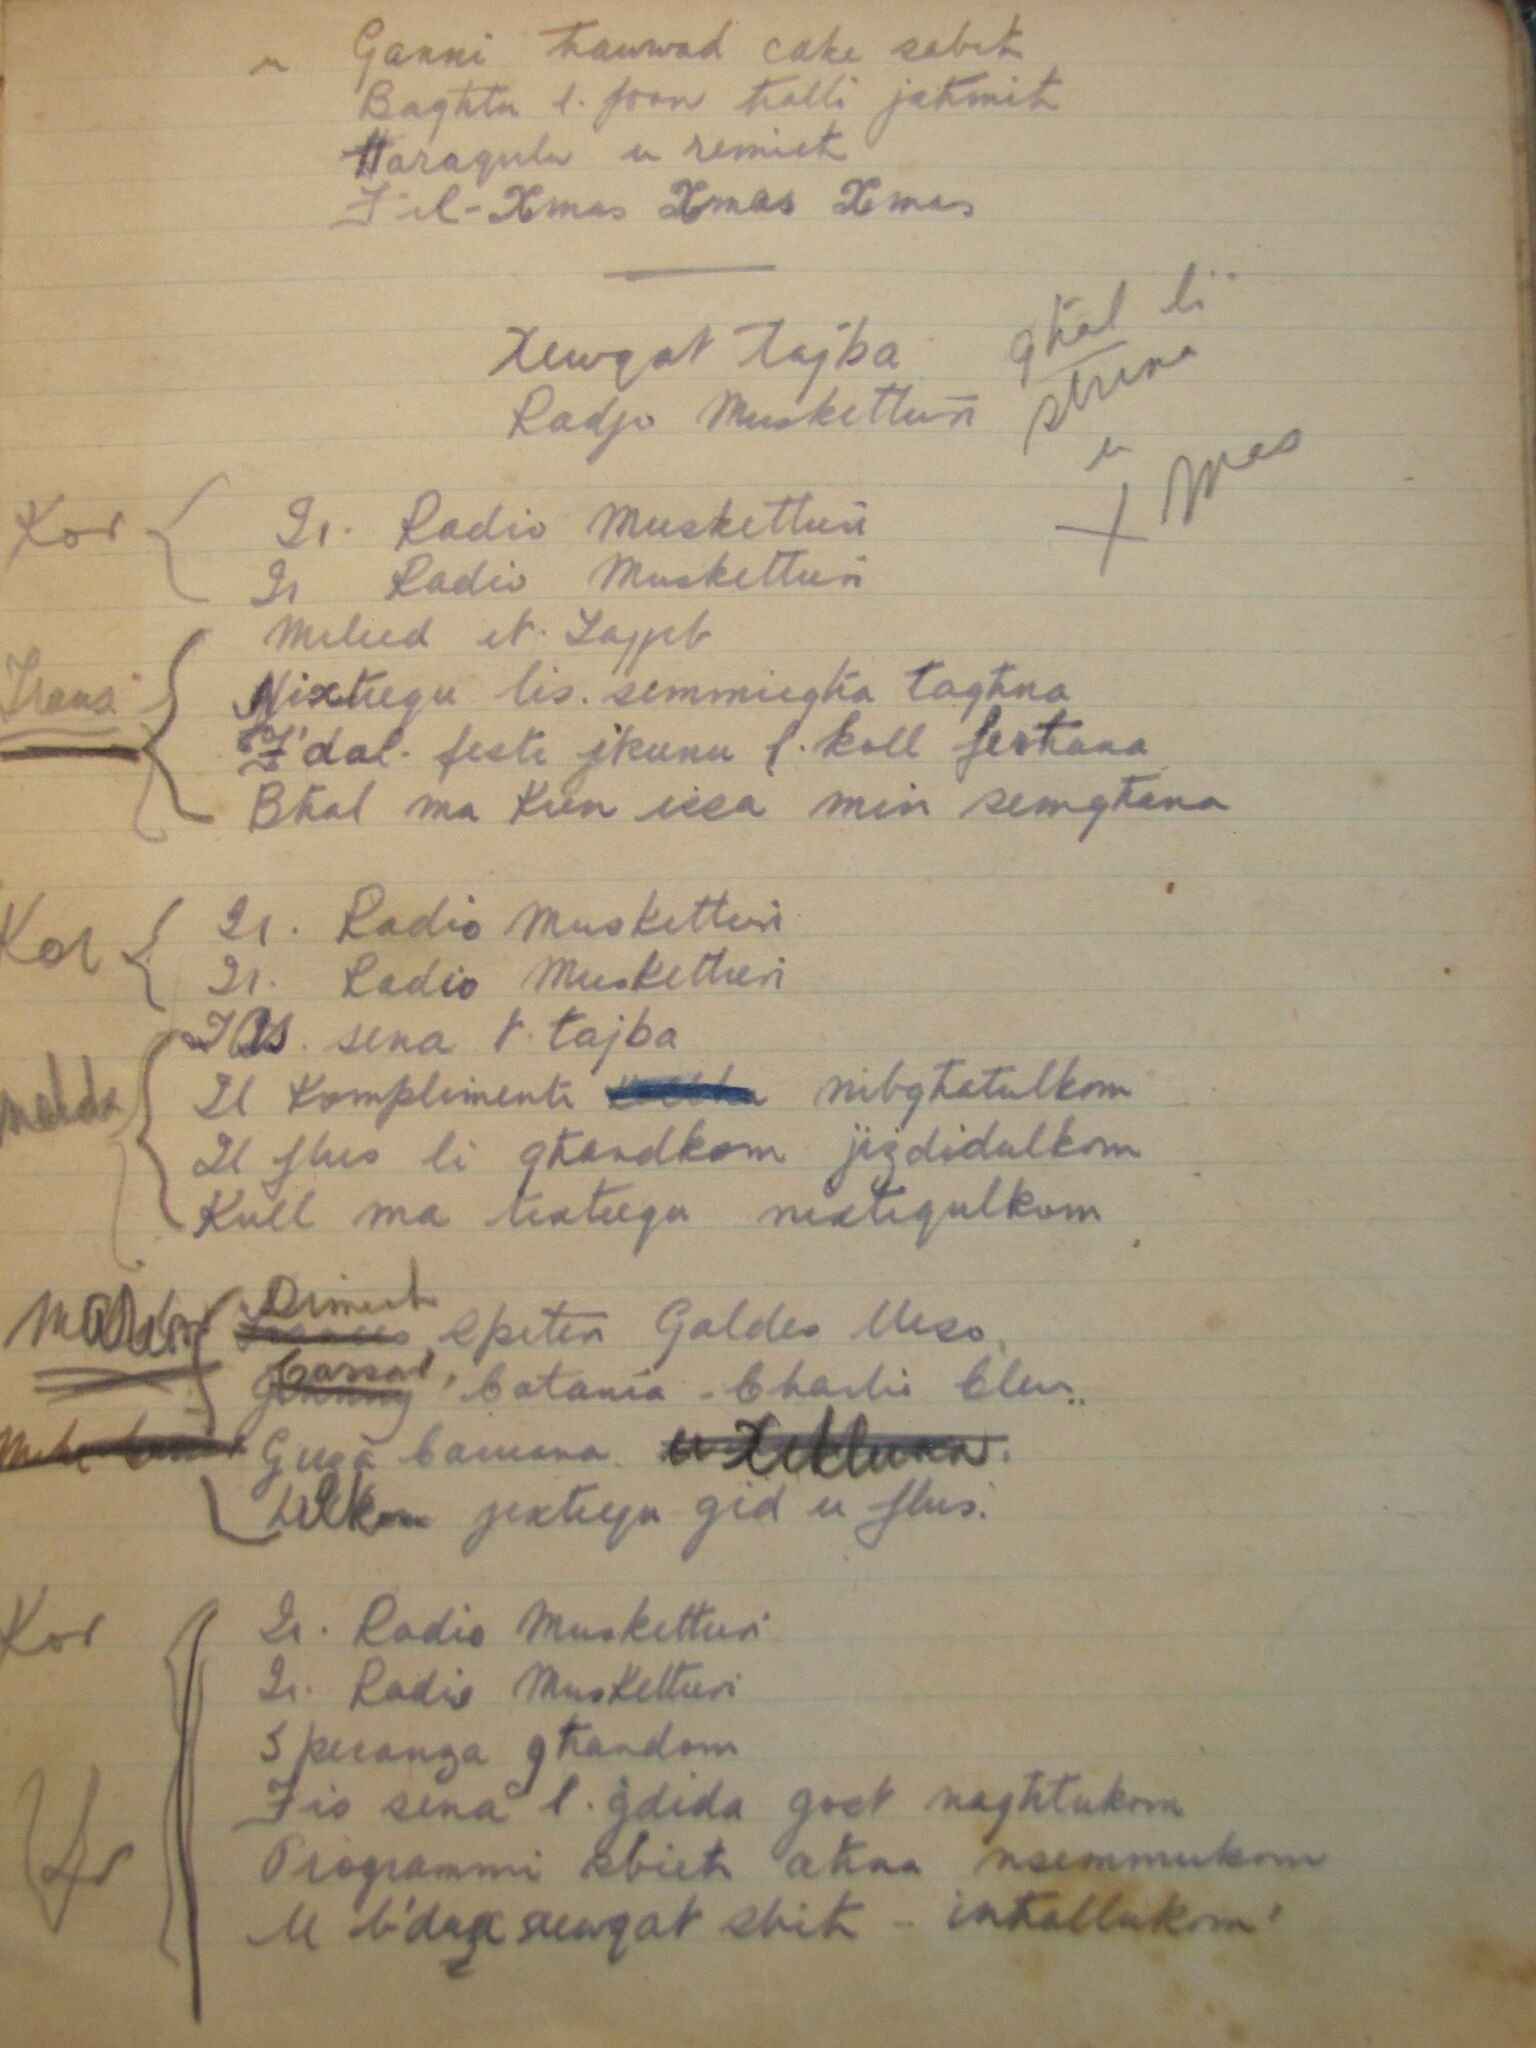 u Ganni hawwad cake sabiħ
Bagħtu l. foon ħalli jaħmih
Ħaraqulu u remieh
F'il-Xmas Xmas Xmas
Xewqat Tajba
Radjo Muskettieri
għal li
strina
u
X mas
Kor
Ir. Radio Muskettieri
Ir Radio Muskettieri
Milied it. Tajjeb
Nixtiequ lis. semmiegħa tagħna
F'dal. festi jkunu l. koll ferħana
Bħal ma kien issa minn semgħana
Kor
Ir. Radio Muskettieri
Ir. Radio Muskettieri
Is. sena t. tajba
Il Komplimenti nibgħatulkom
Il flus li għandkom jiżdidulkom
Kull ma tixtiequ nixtiqulkom
Diment
Spiteri Galdes
Cassar
Catania - Charlie Clew..
Ġuża Caruana
Lilkom jixtiequ ġid u flus.
Kor
Ir. Radio Muskettieri
Ir. Radio Muskettieri
Speranza għandom
Fis sena l. ġdida gost nagħtukom
Programmi sbieħ aħna nsemmukom
U b'dax xewqat sbiħ - inħallukom'